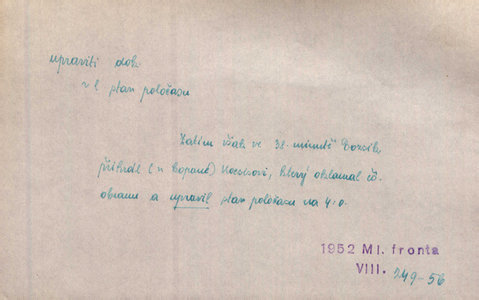 upraviti dok.
v l stav poločasu
Zatím však ve 31. minutě Boszik
přihrál (v kopané) Kocsisovi, který oklamal čs.
obranu a upravil stav poločasu na 4:0.
1952 Ml. fronta
VIII. 249-56